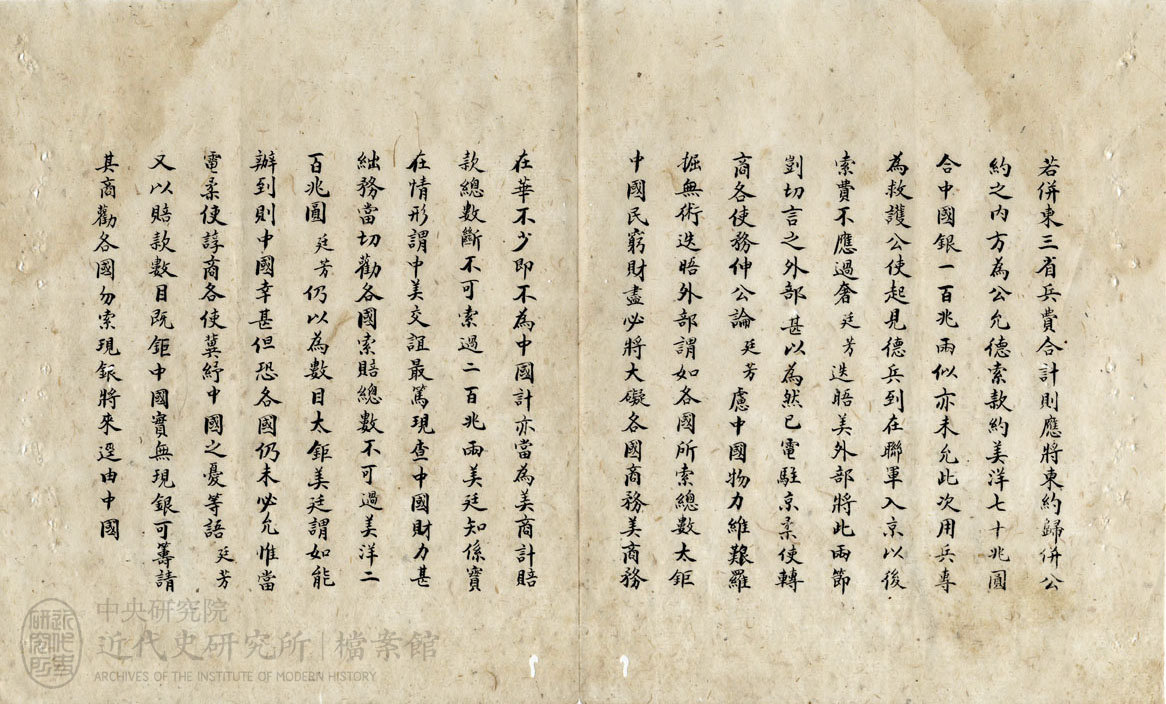 若併東三省兵費合計則應將東約歸併公
約之內方為公允德索款約美洋七十兆圓
合中國銀一百兆兩似亦未允此次用兵專
為救護公使起見德兵到在聯軍入京以後
索費不應過奢廷芳迭晤美外部將此兩節
剴切言之外部甚以為然已電駐京柔使轉
商各使務伸公論廷芳慮中國物力維艱羅
掘無術迭晤外部謂如各國所索總數太鉅
中國民窮財盡必將大礙各國商務美商務
在華不少即不為中國計亦當為美商計賠
款總數斷不可索過二百兆兩美廷知係實
在情形謂中美交誼最篤現查中國財力甚
絀務當切勸各國索賠總數不可過美洋二
百兆圓廷芳仍以為數目太鉅美廷謂如能
辦到則中國幸甚但恐各國仍未必允惟當
電柔使諄商各使冀紓中國之憂等語廷芳
又以賠款數目既鉅中國實無現銀可籌請
其商勸各國勿索現銀將來逕由中國
中央研究院
近代史研究所|檔案館
ARCHIVES OF THE INSTITUTE OF MODERN HISTORY